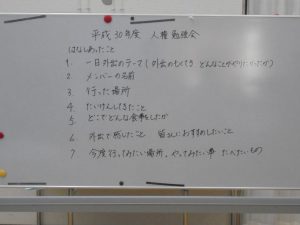 平成30年度 人権勉強会
はなしあったこと
1. 一日外出のテーマ(外出のもくてき どんなことがやりたかったか)
2 メンバーの名前
3. 行った場所
4. たいけんしてきたこと
5 どこでどんな食事をしたか
6. 外出で感じたこと 皆さんにおすすめしたいこと
7 今度行ってみたい場所、やってみたい事 たべたいもの